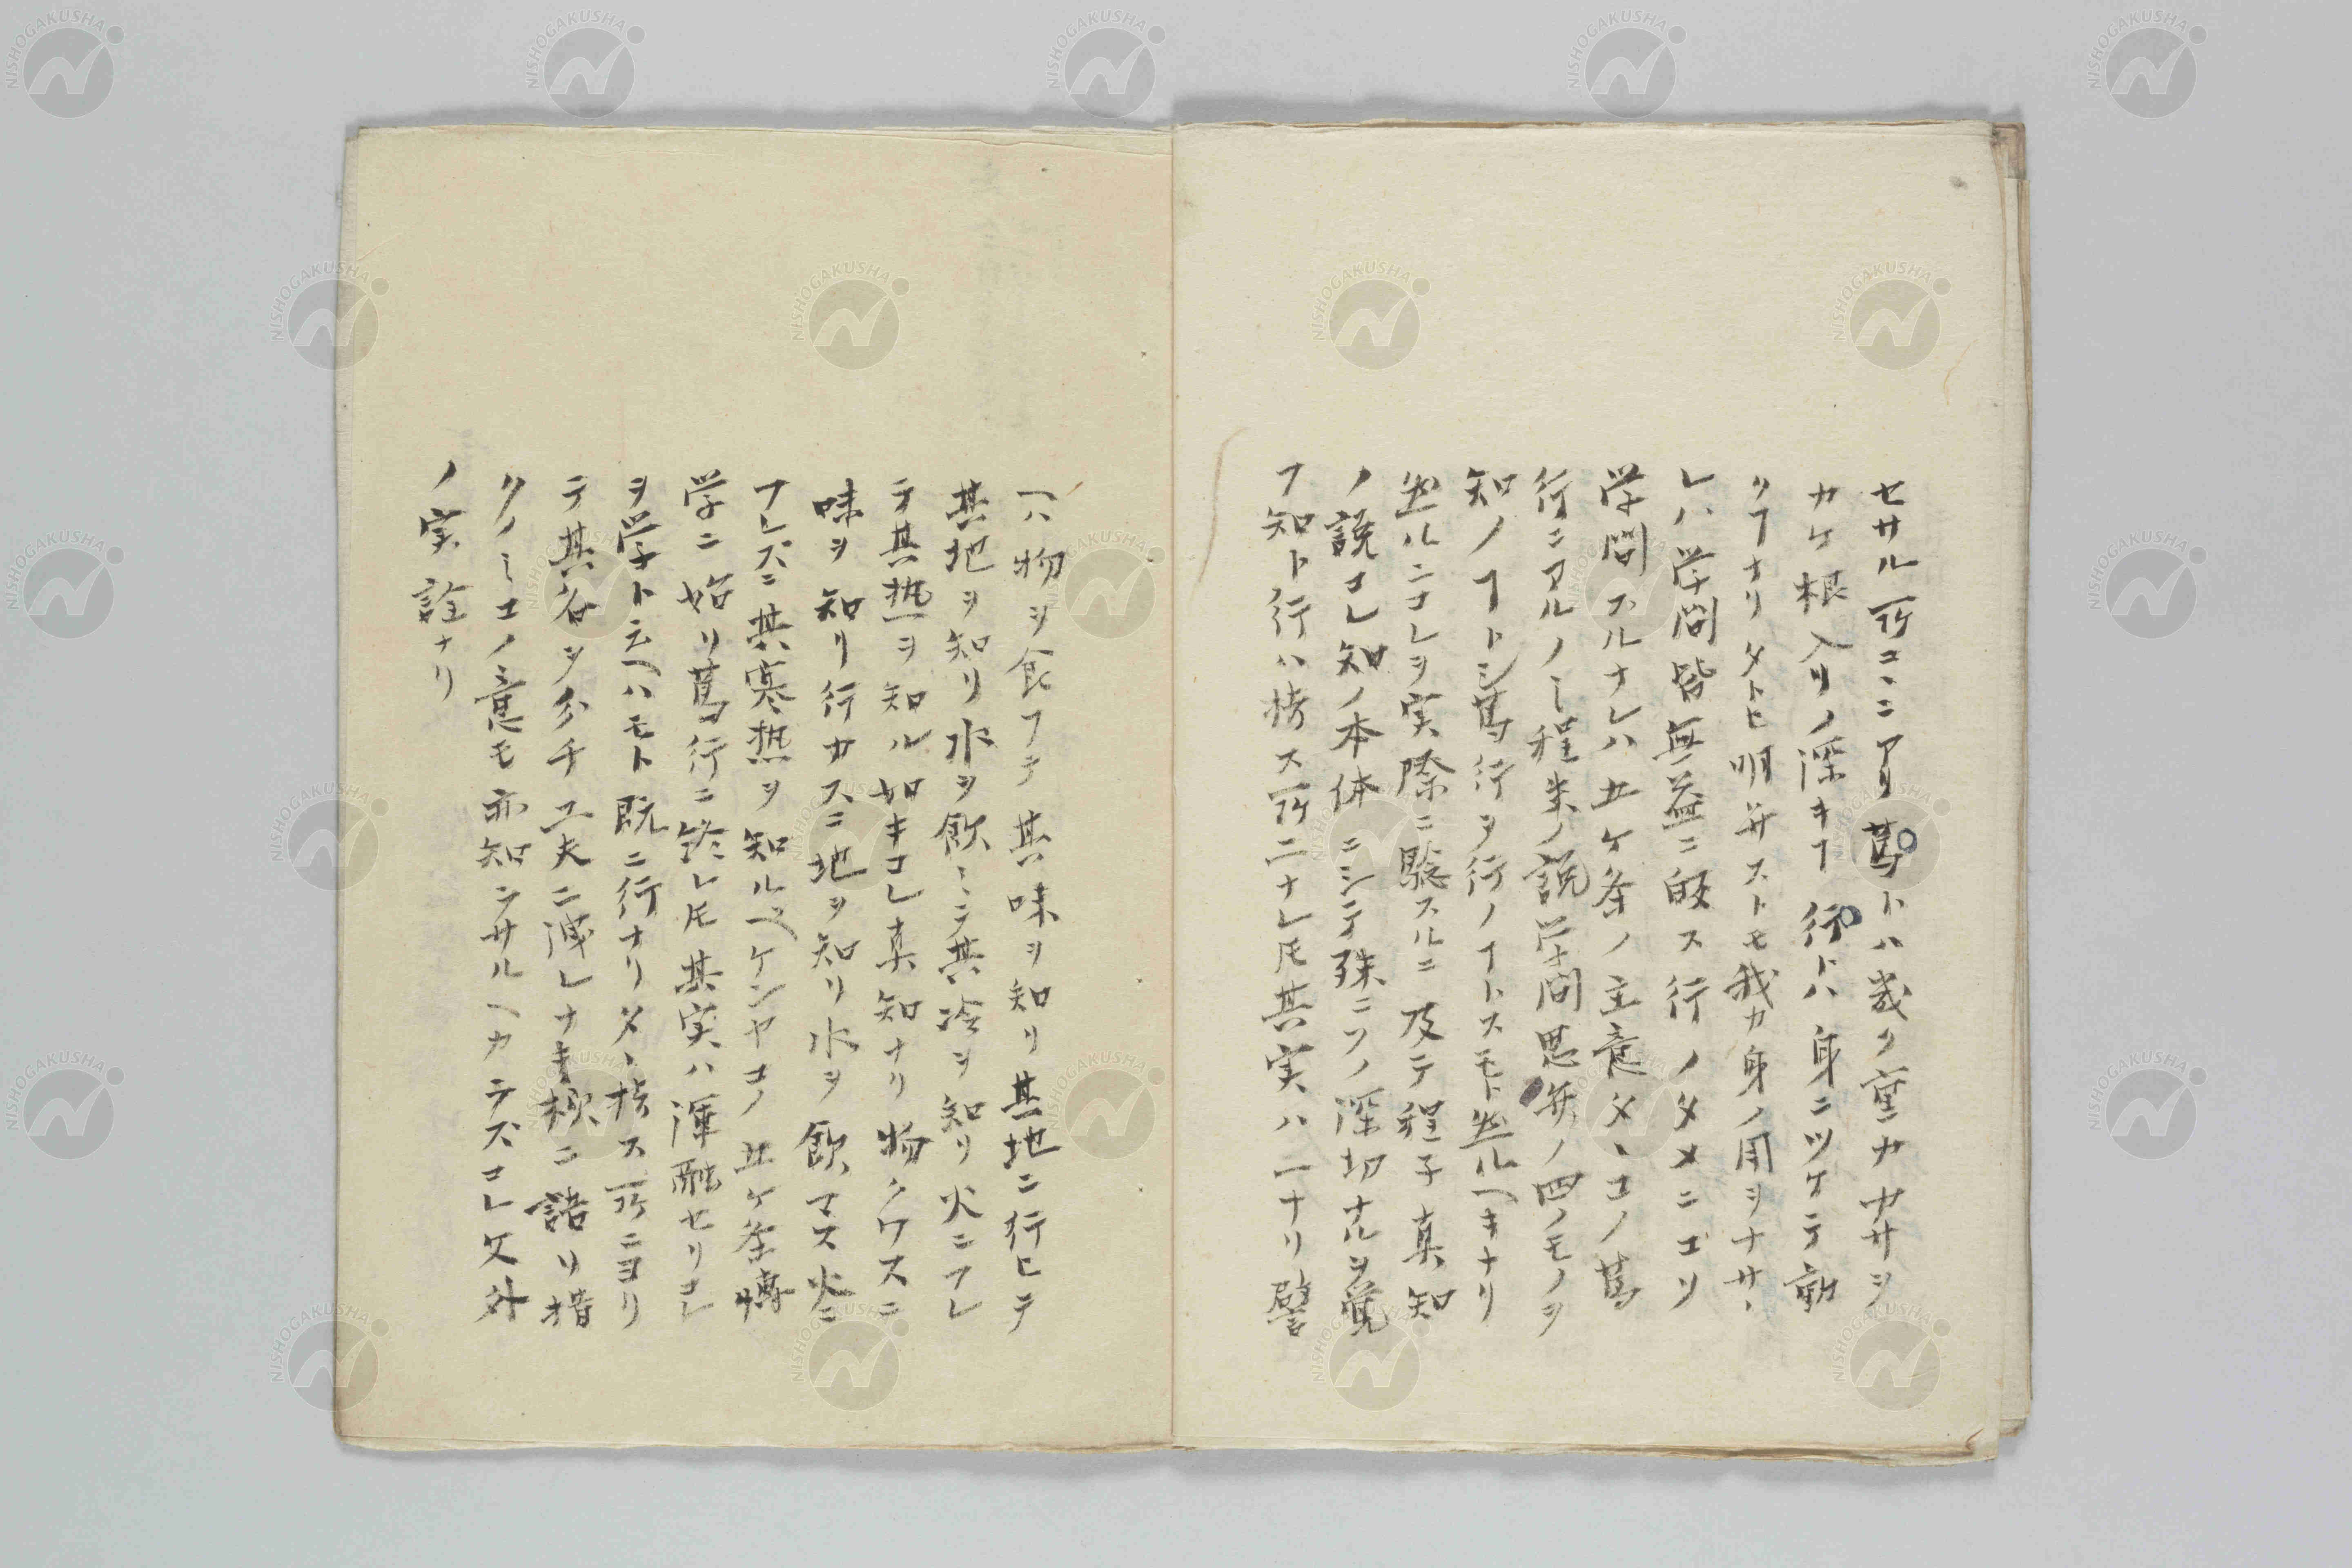 セサル所コヽニアリ篤トハ幾ク重カ甲サシ
カケ根入リノ深キヿ行トハ身ニツケテ動
クヿナリタトヒ明弁ストモ我カ身ノ用ヲナサヽ
レハ学問皆無益ニ皈ス行ノタメニコソ
学問スルナレハ五ケ条ノ主意タヽコノ篤
行ニアルノミ程朱ノ説学問思弁ノ四ノモノヲ
知ノヿトシ篤行ヲ行ノヿトスモト然ルヘキナリ
然ルニコレヲ実際ニ験スルニ及テ程子真知
ノ説コレ知ノ本体ニシテ殊ニソノ深切ナルヲ覚
フ知ト行ハ指ス所二ナレ𪜈其実ハ一ナリ譬
ヘハ物ヲ食フテ其味ヲ知リ其地ニ行ヒテ
其地ヲ知リ水ヲ飲ミテ其冷ヲ知リ火ニフレ
テ其熱ヲ知ル如キコレ真知ナリ物クワスニ
味ヲ知リ行カスニ地ヲ知リ水ヲ飲マス火ニ
フレズニ其寒熱ヲ知ルベケンヤコノ五ケ条博
学ニ始リ篤行ニ終レ𪜈其実ハ渾融セリコレ
ヲ学ト云ヘハモト既ニ行ナリタヽ指ス所ニヨリ
テ其名ヲ分チ工夫ニ洩レナキ様ニ語リ措
クノミコノ意モ亦知ラサルヘカラズコレ文外
ノ実詮ナリ